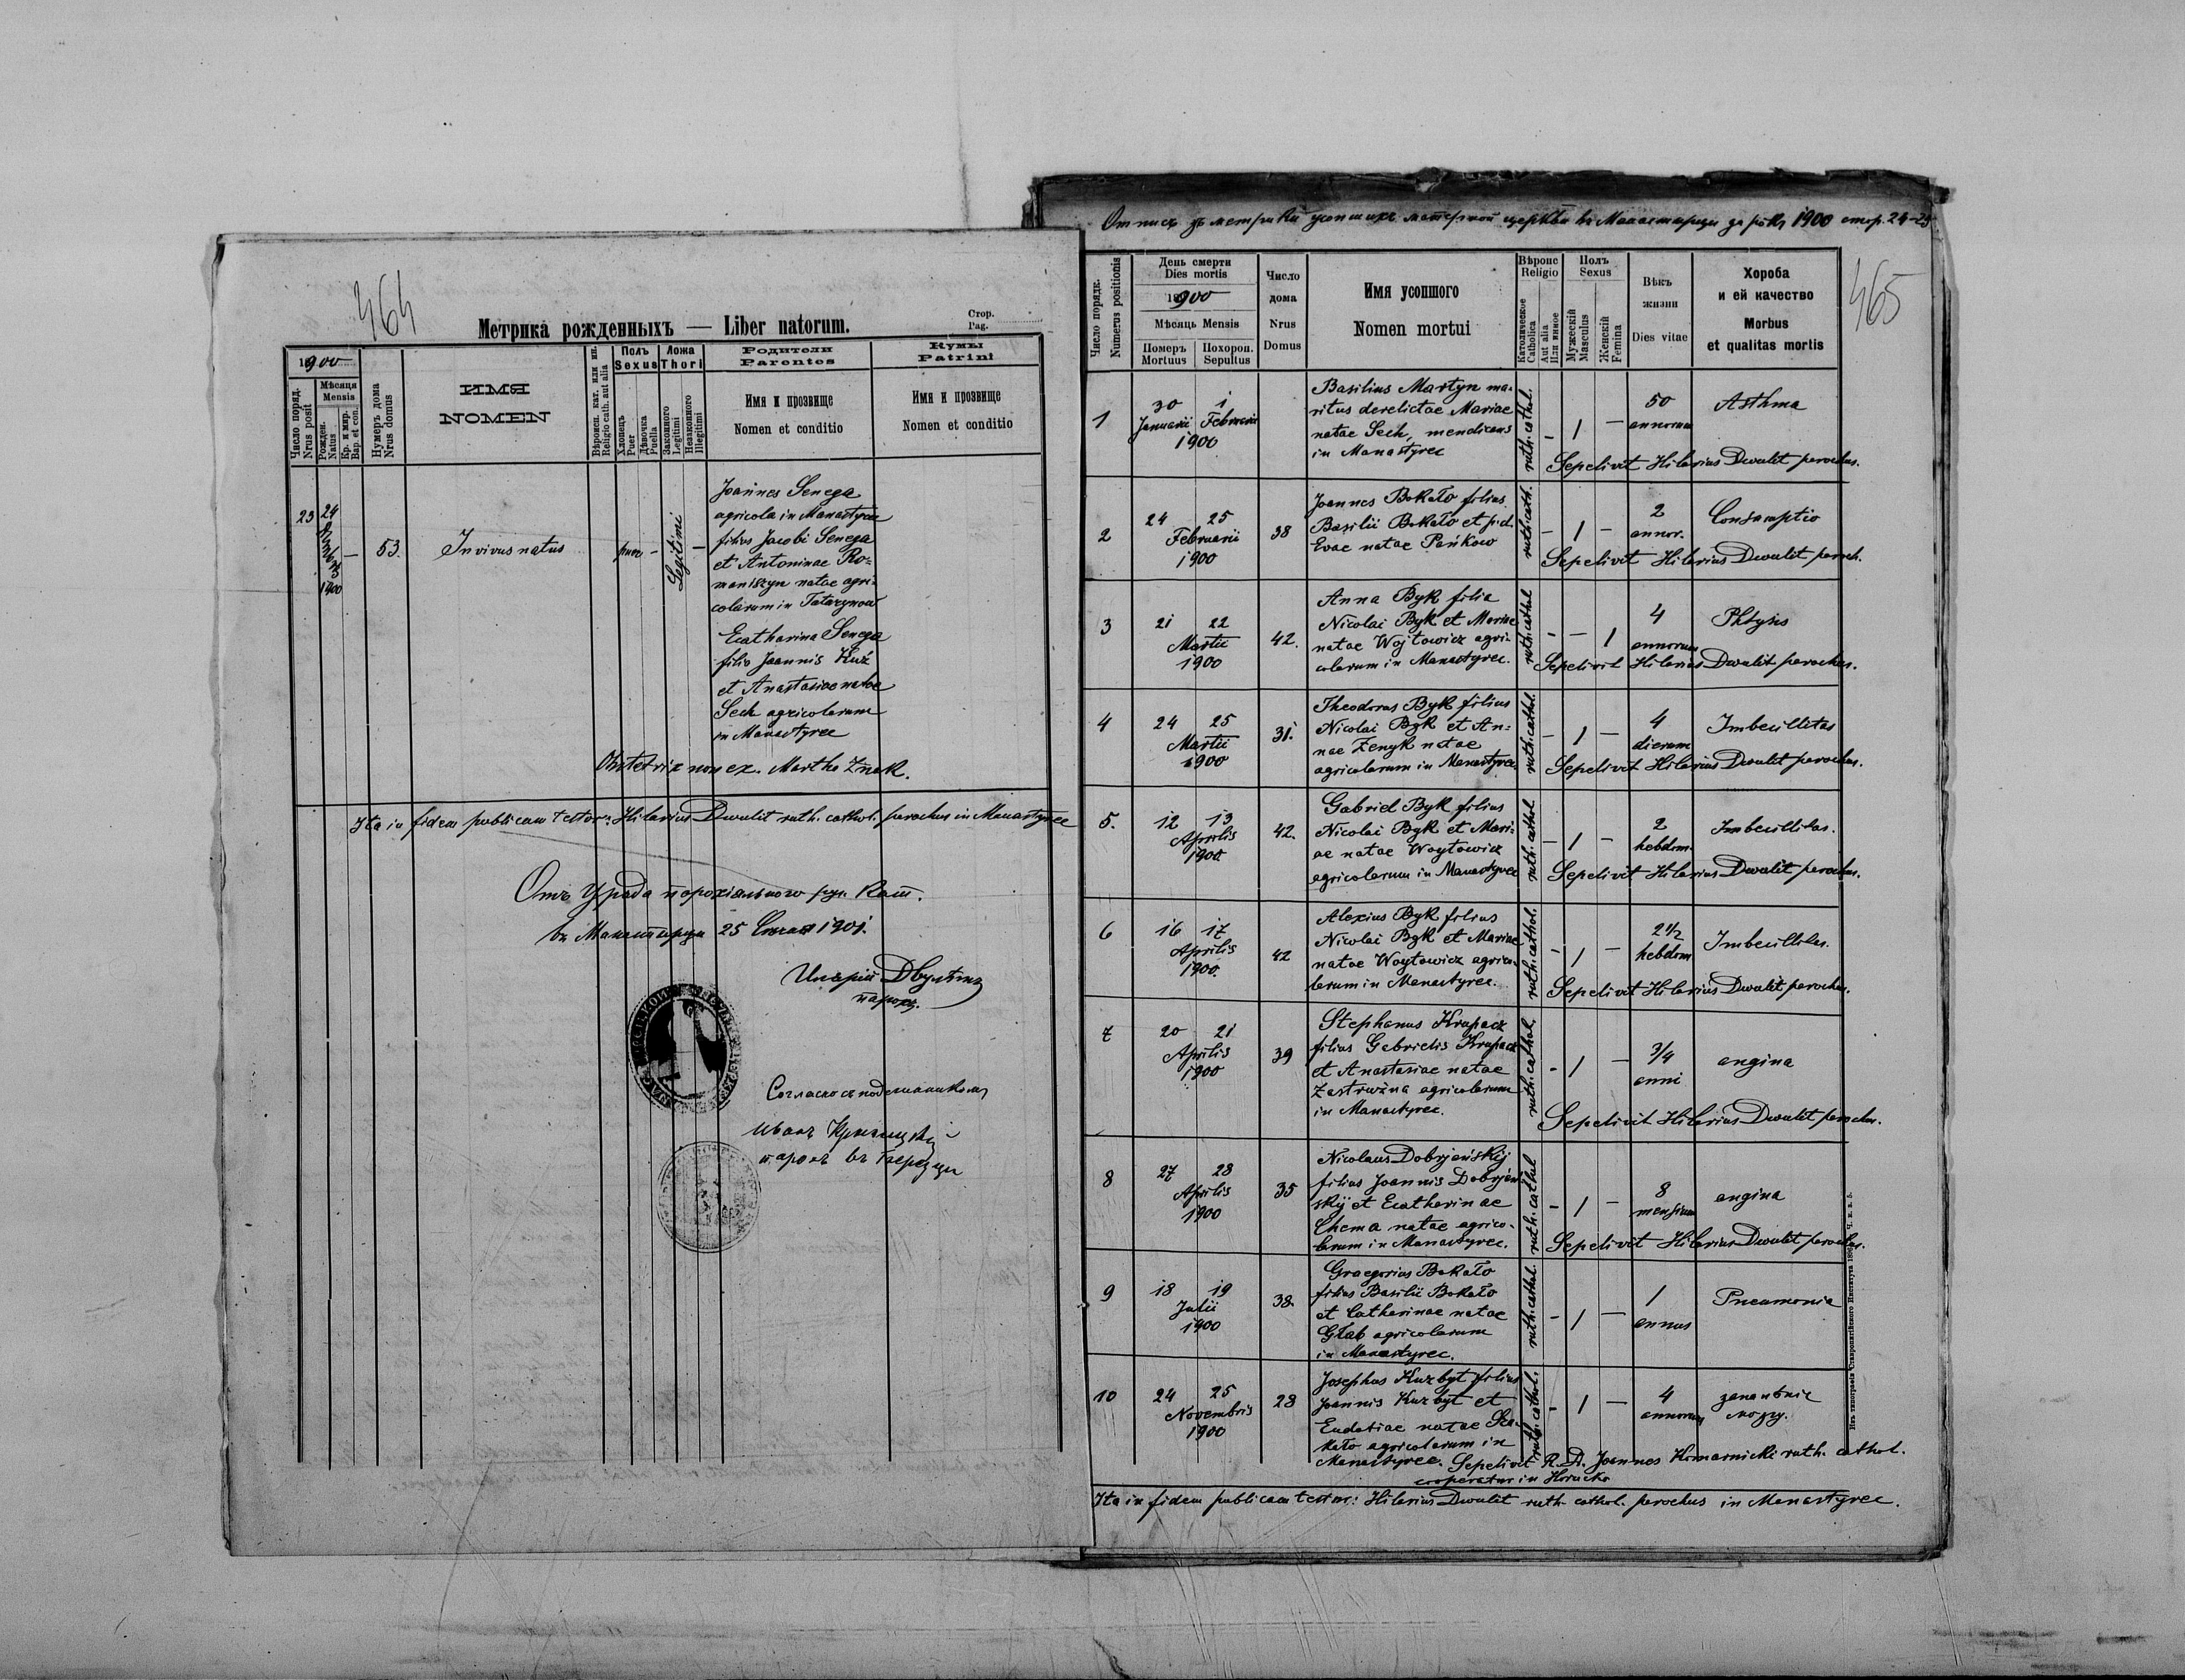 464
Метрика рожденныхъ — Liber natorum.
Стор.
Pag.
1900
Число поряд.
Nrus posit
Мѣсяця
Mensis
Рожден.
Natus
Кр. и мир.
Bap. et con.
Нумеръ дома
Nrus domus
ИМЯ
NOMEN
Вѣроисп. кат. или ин.
Religio cath. aut alia
Полъ
Sexus
Хлопець
Puer
Дѣвочка
Puella
Ложа
Thori
Законного
Legitimi
Незаконного
Illegitimi
Родители
Parentes
Имя и прозвище
Nomen et conditio
Кумы
Patrini
Имя и прозвище
Nomen et conditio
23
24
1900
—
53.
Invivus natus
puer
—
Legitimi
—
Joannes Senega
agricola in Manastyrec
filius Jacobi Senega
et Antoninae Ro-
maniszyn natae agri-
colarum in Tatarynow
Ecatharina Senega
filia Joannis Kuź
et Anastasiae natae
Sech agricolarum
in Manastyrec
Obstetrix non ex. Martha Znak.
Ita in fidem publicam testor: Hilarius Dwulit ruth. cathol. parochus in Manastyrec
Отъ Уряда парохіяльного гр. кат.
въ Манастырци 25 1901.
Иларій Двулѣтъ
парохъ.
Согласно съ подлинникомъ
Иванъ
парохъ въ
465
Отписъ зъ метрики усопшихъ матерной церкви въ Манастырци за рокъ 1900 стор. 24-25
Число порядк.
Numerus positionis
День смерти
Dies mortis
1900
Мѣсяць Mensis
Померъ
Mortuus
Похорон.
Sepultus
Число
дома
Nrus
Domus
Имя усопшого
Nomen mortui
Вѣроис
Religio
Католическое
Catholica
Aut alia
Или инное
Полъ
Sexus
Мужескій
Masculus
Женскій
Femina
Вѣкъ
жизни
Dies vitae
Хороба
и ей качество
Morbus
et qualitas mortis
1
30 1
Januarii Februarii
1900
Basilius Martyn ma-
ritus derelictae Mariae
natae Sech, mendicans
in Manastyrec
ruth. cathol.
— 1 —
50
annorum
Asthma
Sepelivit Hilarius Dwulit parochus.
2
24 25
Februarii
1900
38
Joannes Bokało filius
Basilii Bokało et p.d.
Evae natae Pańkow
ruth. cath.
— 1 —
2
annor.
Consumptio
Sepelivit Hilarius Dwulit paroch.
3
21 22
Martii
1900
42.
Anna Byk filia
Nicolai Byk et Mariae
natae Wojtowicz agri-
colarum in Manastyrec.
ruth. cathol
— — 1
4
annorum
Phtysis
Sepelivit Hilarius Dwulit parochus.
4
24 25
Martii
1900
31.
Theodorus Byk filius
Nicolai Byk et An-
nae Zenyk natae
agricolarum in Manastyrec.
ruth. cathol.
— 1 —
4
dierum
Imbecillitas
Sepelivit Hilarius Dwulit parochus.
5.
12 13
Aprilis
1900
42.
Gabriel Byk filius
Nicolai Byk et Mari-
ae natae Woytowicz
agricolarum in Manastyrec
ruth. cathol
— 1 —
2
hebdom.
Imbecillitas.
Sepelivit Hilarius Dwulit parochus.
6
16 17
Aprilis
1900.
42
Alexius Byk filius
Nicolai Byk et Mariae
natae Woytowicz agrico-
larum in Manastyrec.
ruth. cathol.
— 1 —
2 1/2
hebdom
Imbecillitas.
Sepelivit Hilarius Dwulit parochus.
7
20 21
Aprilis
1900
39
Stephanus Krupacz
filius Gabrielis Krupacz
et Anastasiae natae
Zastriwżna agricolarum
in Manastyrec.
ruth. cathol.
— 1 —
3/4
anni
angina
Sepelivit Hilarius Dwulit parochus.
8
27 28
Aprilis
1900
35
Nicolaus Dobrjańskij
filius Joannis Dobrjań
skij et Ecatharinae
Chema natae agrico-
larum in Manastyrec.
ruth. cathol
— 1 —
8
mensium
angina
Sepelivit Hilarius Dwulit parochus.
9
18 19
Julii
1900
38.
Graegorius Bokało
filius Basilii Bokało
et Catharinae natae
Głab agricolarum
in Manastyrec.
ruth. cathol.
— 1 —
1
annus
Pneumonia
10
24 25
Novembris
1900
28
Josephus Kuzbyt filius
Joannis Kuzbyt et
Eudotiae natae Ska-
kało agricolarum in
Manastyrec.
ruth. cathol.
— 1 —
4
annorum
запаленіе
мозгу.
Sepelivit R.D. Joannes Komarnicki ruth. cathol.
cooperator in Horucko
Ita in fidem publicam testor: Hilarius Dwulit ruth. cathol. parochus in Manastyrec.